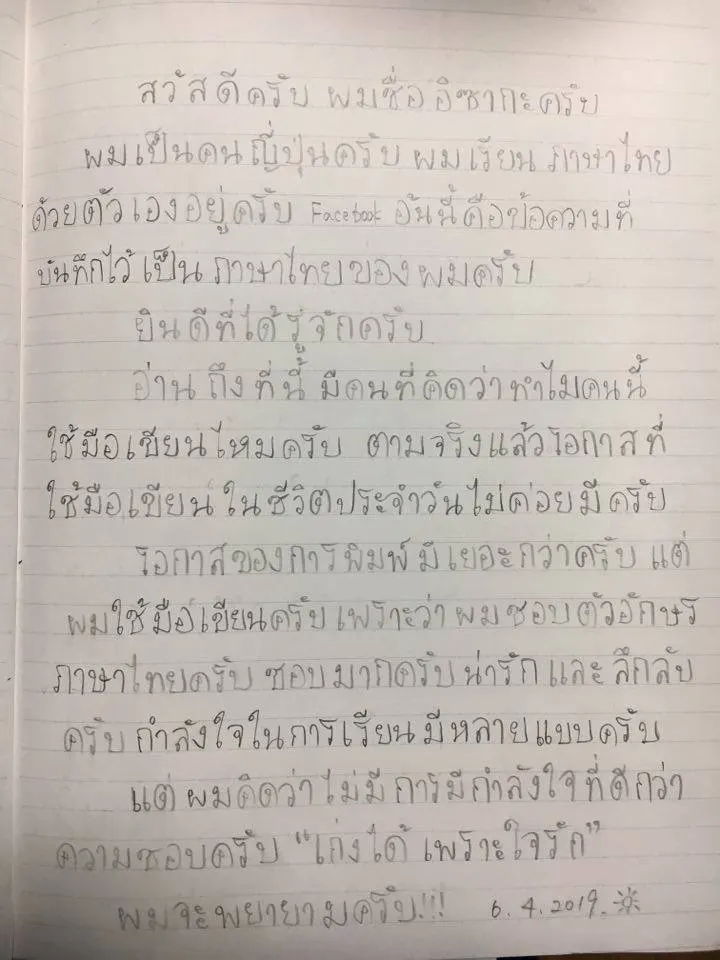 สวัสดีครับ ผมชื่ออิซากะครับ
ผมเป็นคนญี่ปุ่นครับ ผมเรียน ภาษาไทย
ด้วยตัวเองอยู่ครับ Facebook อันนี้คือข้อความที่
บันทึกไว้เป็น ภาษาไทยของผมครับ
ยินดีที่ได้รู้จักครับ
อ่านถึงที่นี้ มีคนที่คิดว่าทำไมคนนี้
ใช้มือเขียนไหมครับ ตามจริงแล้วโอกาสที่
ใช้มือเขียนในชีวิตประจำวันไม่ค่อยมีครับ
โอกาสของการพิมพ์มีเยอะกว่าครับ แต่
ผมใช้มือเขียนครับ เพราะว่า ผมชอบตัวอักษร
ภาษาไทยครับ ชอบมากครับ น่ารัก และ ลึกลับ
ครับ กำลังใจในการเรียนมีหลายแบบครับ
แต่ ผมคิดว่าไม่มีการมีกำลังใจที่ดีกว่า
ความชอบครับ "เก่งได้ เพราะใจรัก"
ผมจะพยายามครับ!!! 6. 4. 2019.